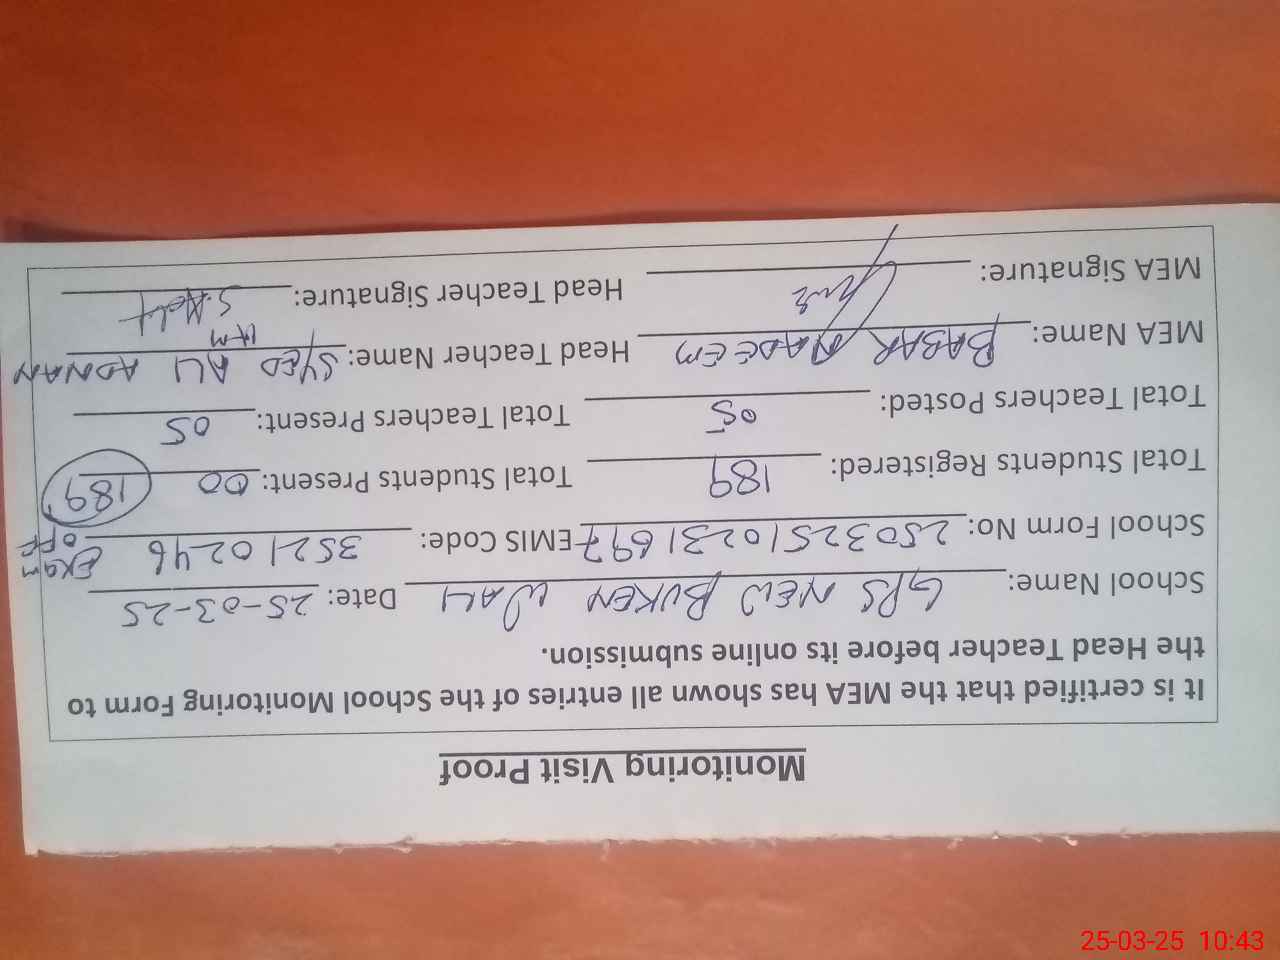 Monitoring Visit Proof
It is certified that the MEA has shown all entries of the School Monitoring Form to
the Head Teacher before its online submission.
School Name: GPS NEW BUKEN WALI Date: 25-03-25
School Form No: 2503251023 1697 EMIS Code: 35210246 Exam off
Total Students Registered: 189 Total Students Present: 00 189
Total Teachers Posted: 05 Total Teachers Present: 05
MEA Name: BABAR NADEEM Head Teacher Name: SYED ALI ADNAN
MEA Signature: Head Teacher Signature:
25-03-25 10:43